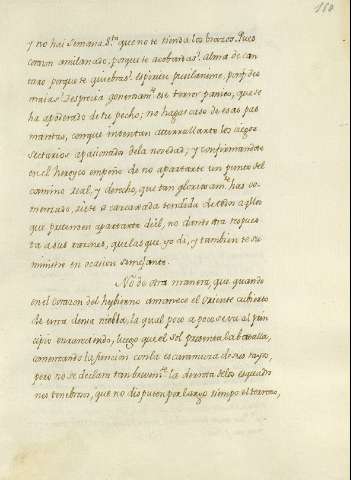 160
y no hai Semana S.ta que no te tienda los brazos. Pues
corazon amilanado, porque te acobardas? alma de can
taro porque te quiebras? Espiritu pusilanime, porq.e des
maias? Desprecia generosam.te ese terror panico, que se
ha apoderado de tu pecho; no hagas caso de esas pa
trañas, conque intentan aturrullarte los ciegos
sectarios apasionados de la novedad; y confirmandote
en el heroyco empeño de no apartar un punto del
camino real, y derecho, que tan gloriosam.te has co
menzado, riete a carcaxada tendida de todos aquellos
que pretenden apartarte de èl, no dando otra respues
ta a sus razones, que las que yo dè, y tambien te su
ministre en ocasion semejante.
No de otra manera, que quando
en el corazon del hybierno amanece el Oriente cubierto
de una densa niebla, la qual poco a poco se va al prin
cipio enrareciendo, luego que el sol presenta la batalla,
comenzando la funcion con la escaramuza de sus rayos,
pero no se declara tan brevem.te la derrota de los esquadro
nes tenebrosos, que no disputen por largo tiempo el terreno,